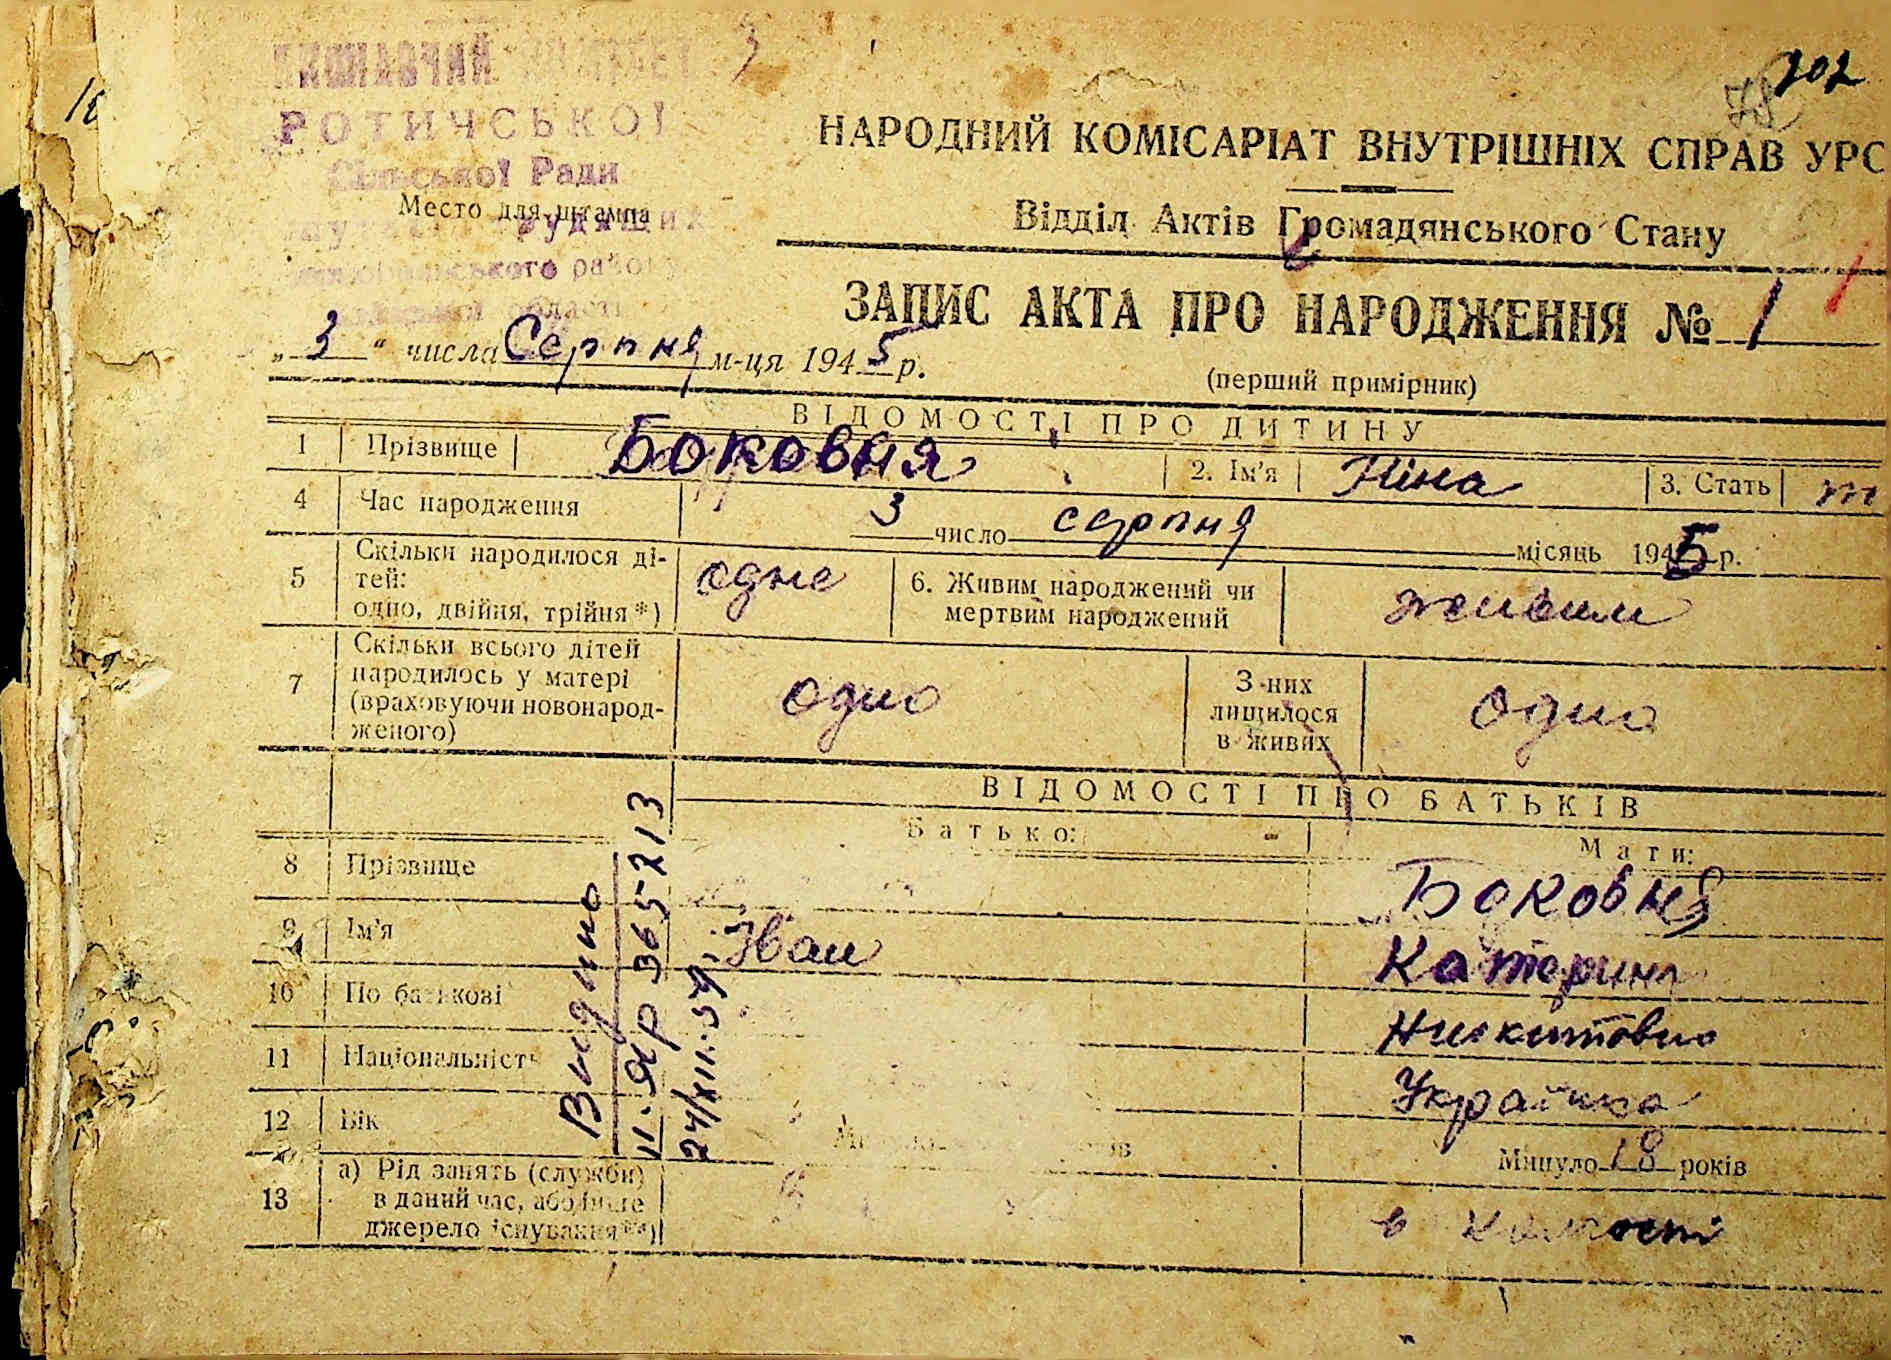 202
78
РОТИЧСЬКОЇ
Сільської Ради
Место для штампа
трудящих
району
області
НАРОДНИЙ КОМІСАРІАТ ВНУТРІШНІХ СПРАВ УРС
Відділ Актів Громадянського Стану
ЗАПИС АКТА ПРО НАРОДЖЕННЯ № 1
„3“ числа Серпня м-ця 1945 р.
(перший примірник)
ВІДОМОСТІ ПРО ДИТИНУ
1 Прізвище Боковня 2. Ім'я Ніна 3. Стать
4 Час народження 3 число серпня місяць 1945 р.
5 Скільки народилося ді-
тей:
одно, двійня, трійня *) одне
6. Живим народжений чи
мертвим народжений живим
7 Скільки всього дітей
народилось у матері
(враховуючи новонарод-
женого) одно
З них
лишилося
в живих одно
ВІДОМОСТІ ПРО БАТЬКІВ
Батько: Мати:
8 Прізвище Боковня
9 Ім'я Іван Катерина
10 По батькові Никитовна
11 Національність Українка
12 Вік Минуло 18 років
13 а) Рід занять (служби)
в даний час, або інше
джерело існування **) в
Видано
II. ЯР 365213
24/XII.59.